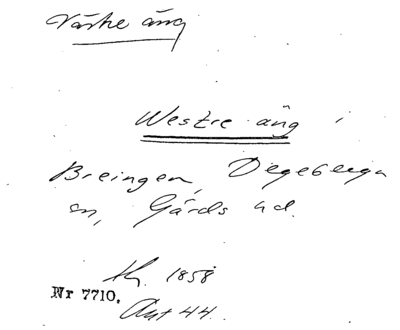 Västre äng
Westre äng i
Breingen, Degeberga
sn, Gärds hd.
1858
Nr 7710.
Akt 44.